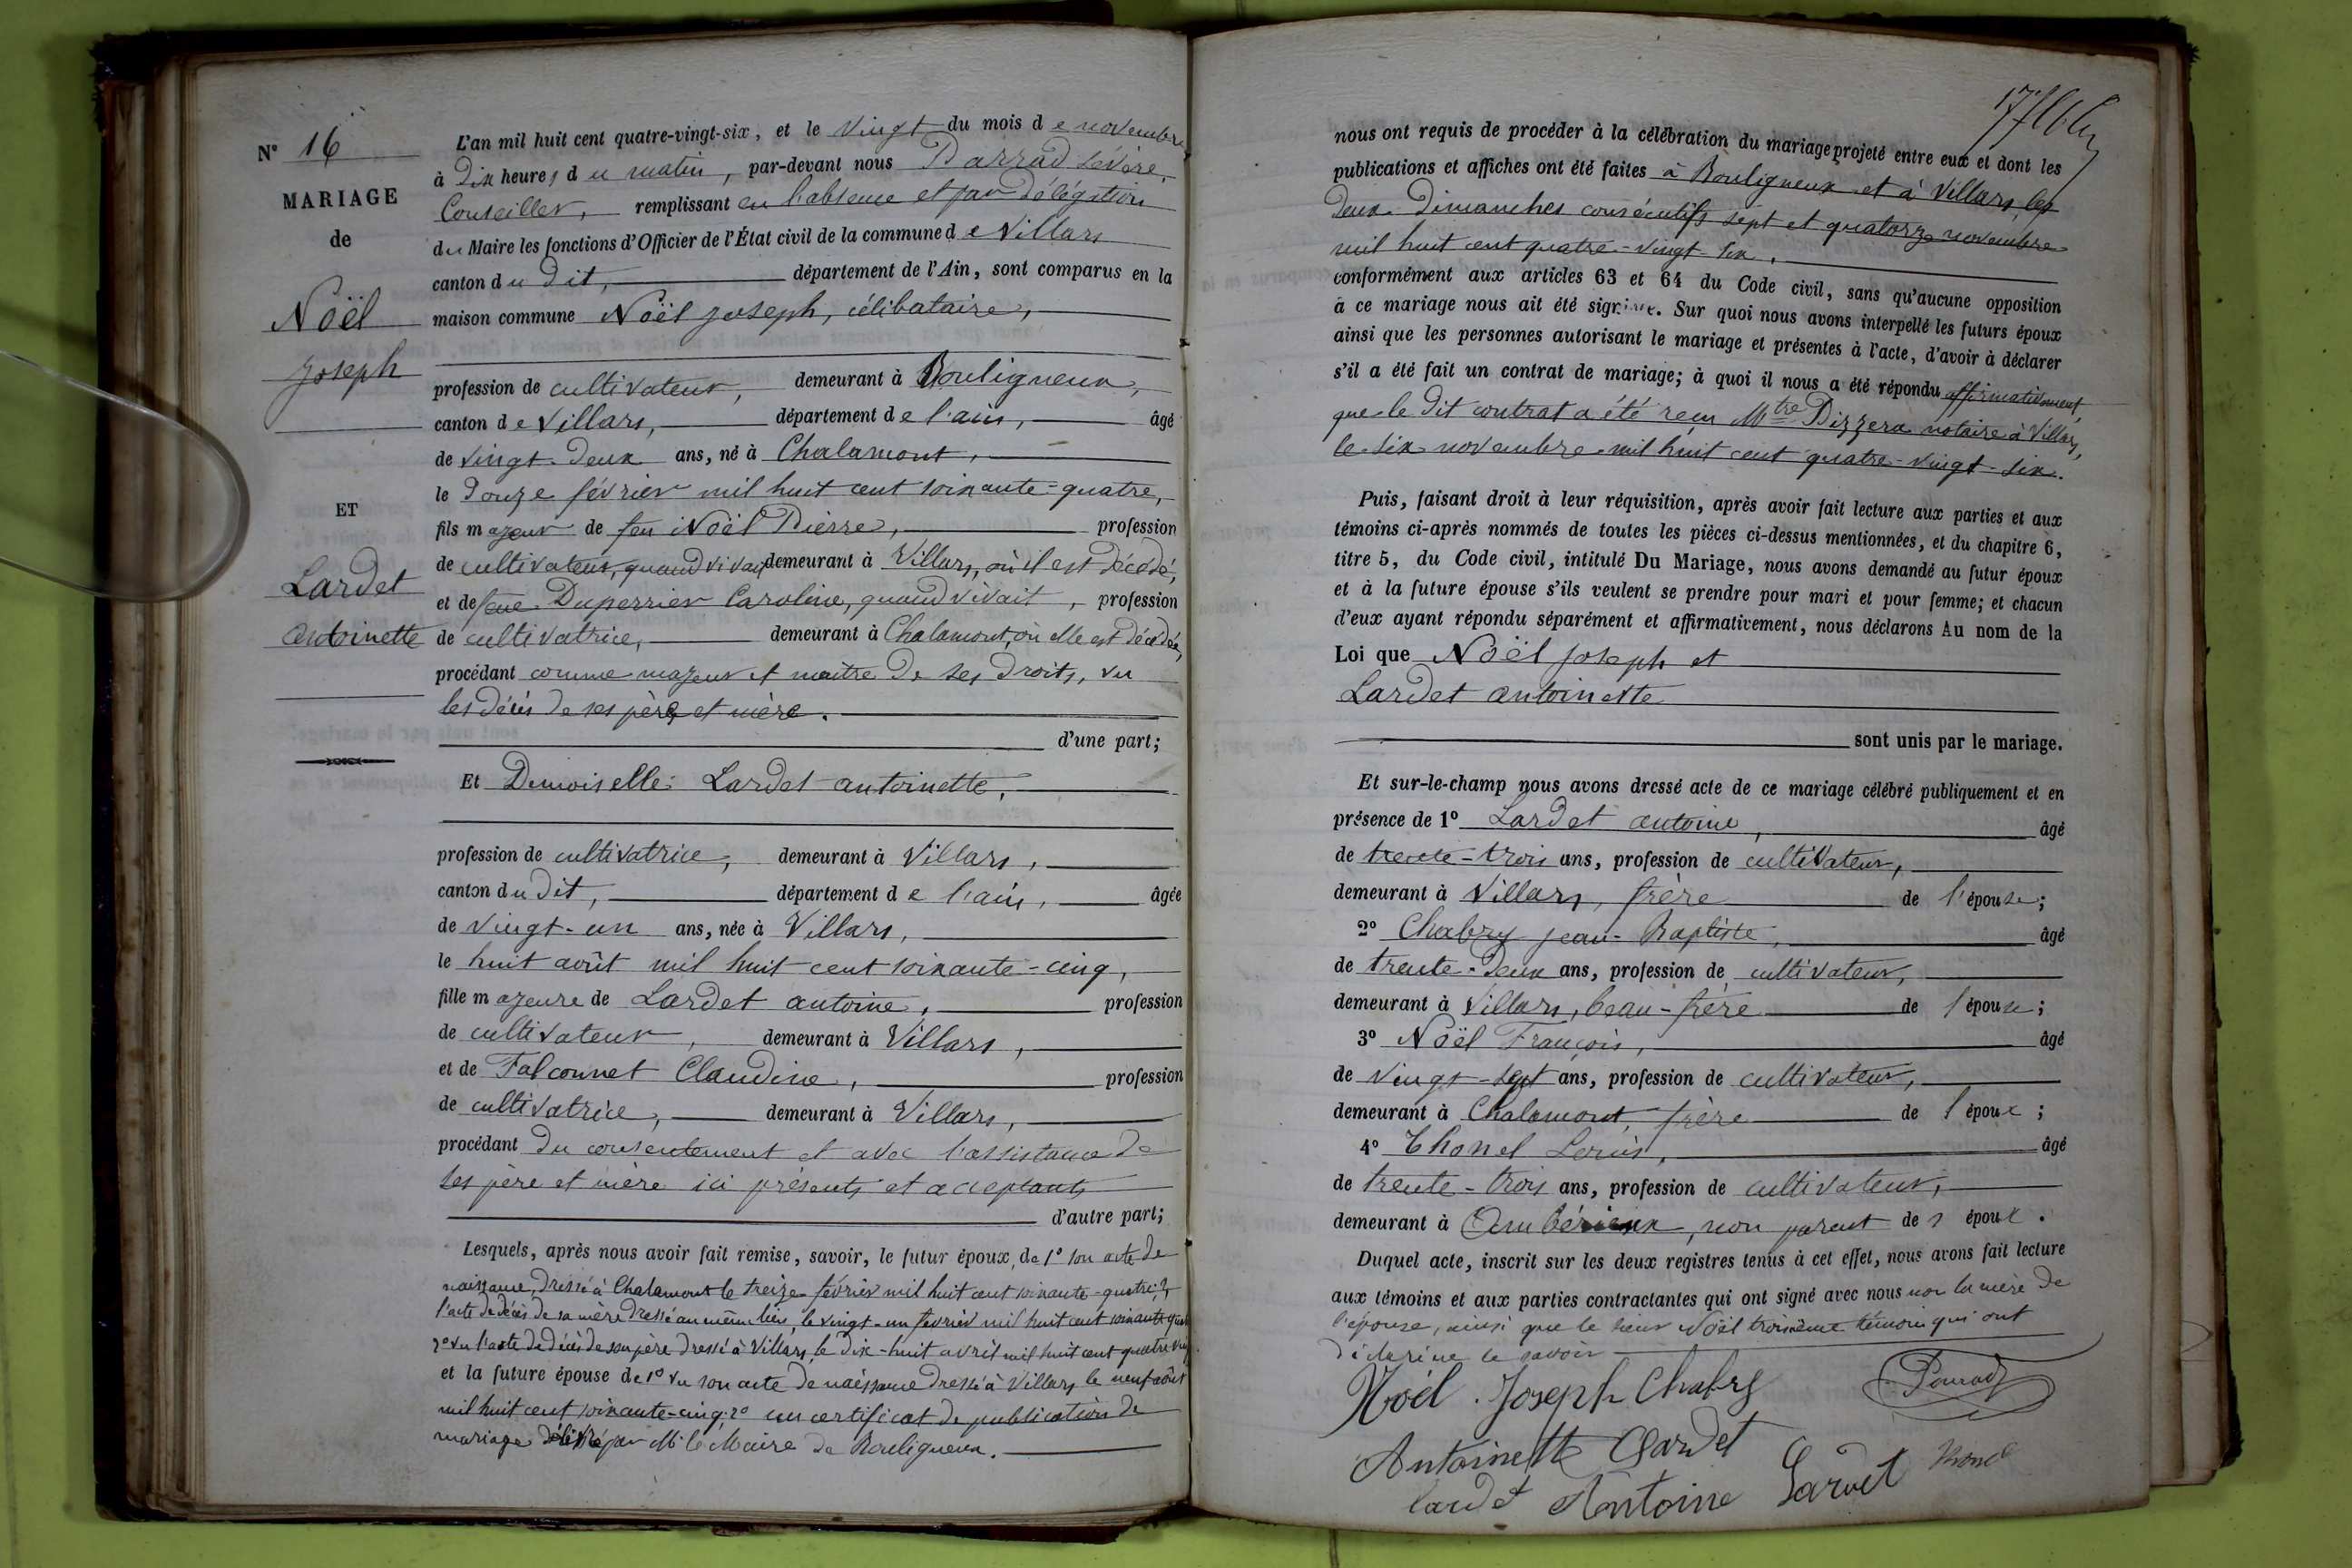 N° 16
MARIAGE
de
Noël
Joseph
ET
Lardet
Antoinette
L'an mil huit cent quatre-vingt-six, et le vingt du mois de novembre
à dix heures du matin, par-devant nous Parrad Sévère,
Conseiller, remplissant en l'absence et par délégation
du Maire les fonctions d'Officier de l'État civil de la commune de Villars
canton du dit, département de l'Ain, sont comparus en la
maison commune Noël Joseph, célibataire,
profession de cultivateur, demeurant à Bouligneux,
canton de Villars, département de l'ain, âgé
de vingt-deux ans, né à Chalamont,
le douze février mil huit cent soixante-quatre,
fils majeur de feu Noël Pierre, profession
de cultivateur, quand vivait demeurant à Villars, où il est décédé,
et de feue Duperrier Caroline, quand vivait, profession
de cultivatrice, demeurant à Chalamont, où elle est décédée,
procédant comme majeur et maître de ses droits, vu
les décès de ses père et mère.
d'une part;
Et Demoiselle Lardet antoinette,
profession de cultivatrice, demeurant à Villars,
canton du dit, département de l'ain, âgée
de vingt-un ans, née à Villars,
le huit août mil huit cent soixante-cinq,
fille majeure de Lardet antoine, profession
de cultivateur, demeurant à Villars,
et de Falconnet Claudine, profession
de cultivatrice, demeurant à Villars,
procédant du consentement et avec l'assistance de
ses père et mère ici présents et acceptants
d'autre part;
Lesquels, après nous avoir fait remise, savoir, le futur époux, de 1° son acte de
naissance, dressé à Chalamont le treize février mil huit cent soixante-quatre; 2°
l'acte de décès de sa mère dressé au même lieu, le vingt-un février mil huit cent soixante
3° vu l'acte de décès de son père dressé à Villars, le dix-huit avril mil huit cent quatre
et la future épouse de 1° vu son acte de naissance dressé à Villars le neuf août
mil huit cent soixante-cinq; 2° un certificat de publication de
mariage délivré par Mr le Maire de Bouligneux.
nous ont requis de procéder à la célébration du mariage projeté entre eux et dont les
publications et affiches ont été faites à Bouligneux et à Villars, les
deux dimanches consécutifs sept et quatorze novembre
mil huit cent quatre-vingt-six,
conformément aux articles 63 et 64 du Code civil, sans qu'aucune opposition
à ce mariage nous ait été signifiée. Sur quoi nous avons interpellé les futurs époux
ainsi que les personnes autorisant le mariage et présentes à l'acte, d'avoir à déclarer
s'il a été fait un contrat de mariage; à quoi il nous a été répondu affirmativement,
que le dit contrat a été reçu Mtre Pizzera notaire à Villars,
le six novembre mil huit cent quatre-vingt-six.
Puis, faisant droit à leur réquisition, après avoir fait lecture aux parties et aux
témoins ci-après nommés de toutes les pièces ci-dessus mentionnées, et du chapitre 6,
titre 5, du Code civil, intitulé Du Mariage, nous avons demandé au futur époux
et à la future épouse s'ils veulent se prendre pour mari et pour femme; et chacun
d'eux ayant répondu séparément et affirmativement, nous déclarons Au nom de la
Loi que Noël Joseph et
Lardet antoinette
sont unis par le mariage.
Et sur-le-champ nous avons dressé acte de ce mariage célébré publiquement et en
présence de 1° Lardet antoine, âgé
de trente-trois ans, profession de cultivateur,
demeurant à Villars, frère de l'épouse;
2° Chabry Jean-Baptiste, âgé
de trente-deux ans, profession de cultivateur,
demeurant à Villars, beau-frère de l'épouse;
3° Noël François, âgé
de vingt-sept ans, profession de cultivateur,
demeurant à Chalamont, frère de l'époux;
4° Thonel Louis, âgé
de trente-trois ans, profession de cultivateur,
demeurant à Ambérieux, non parent de l'époux.
Duquel acte, inscrit sur les deux registres tenus à cet effet, nous avons fait lecture
aux témoins et aux parties contractantes qui ont signé avec nous non la mère de
l'épouse, ainsi que le sieur Noël troisième témoin qui ont
déclaré ne le savoir
Noël Joseph Chabry
Antoinette Lardet
lardet Antoine Lardet